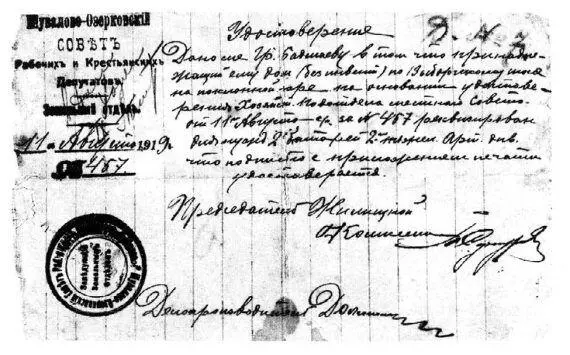 Шувалово-Озерковскій
СОВѢТЪ
Рабочихъ и Крестьянскихъ
Депутатовъ.
Земельный отдѣлъ.
11 го Августо 1919 г.
№ 457
Удостоверение
Д. № 7
Дано сие Гр. Бадмаеву в том что принадле-
жащий ему дом по Выборгскому шоссе
на поклонной горе на основании удостове-
рения Хозяйст. Подотдела местного Совета
от 11го Августо с/г за № 457 реквизирован
для нужд 2й батареи 2й Арт. див.
что подписью с приложением печати
удостоверяется.
Председатель Жилищной
Комиссии
Делопроизводитель